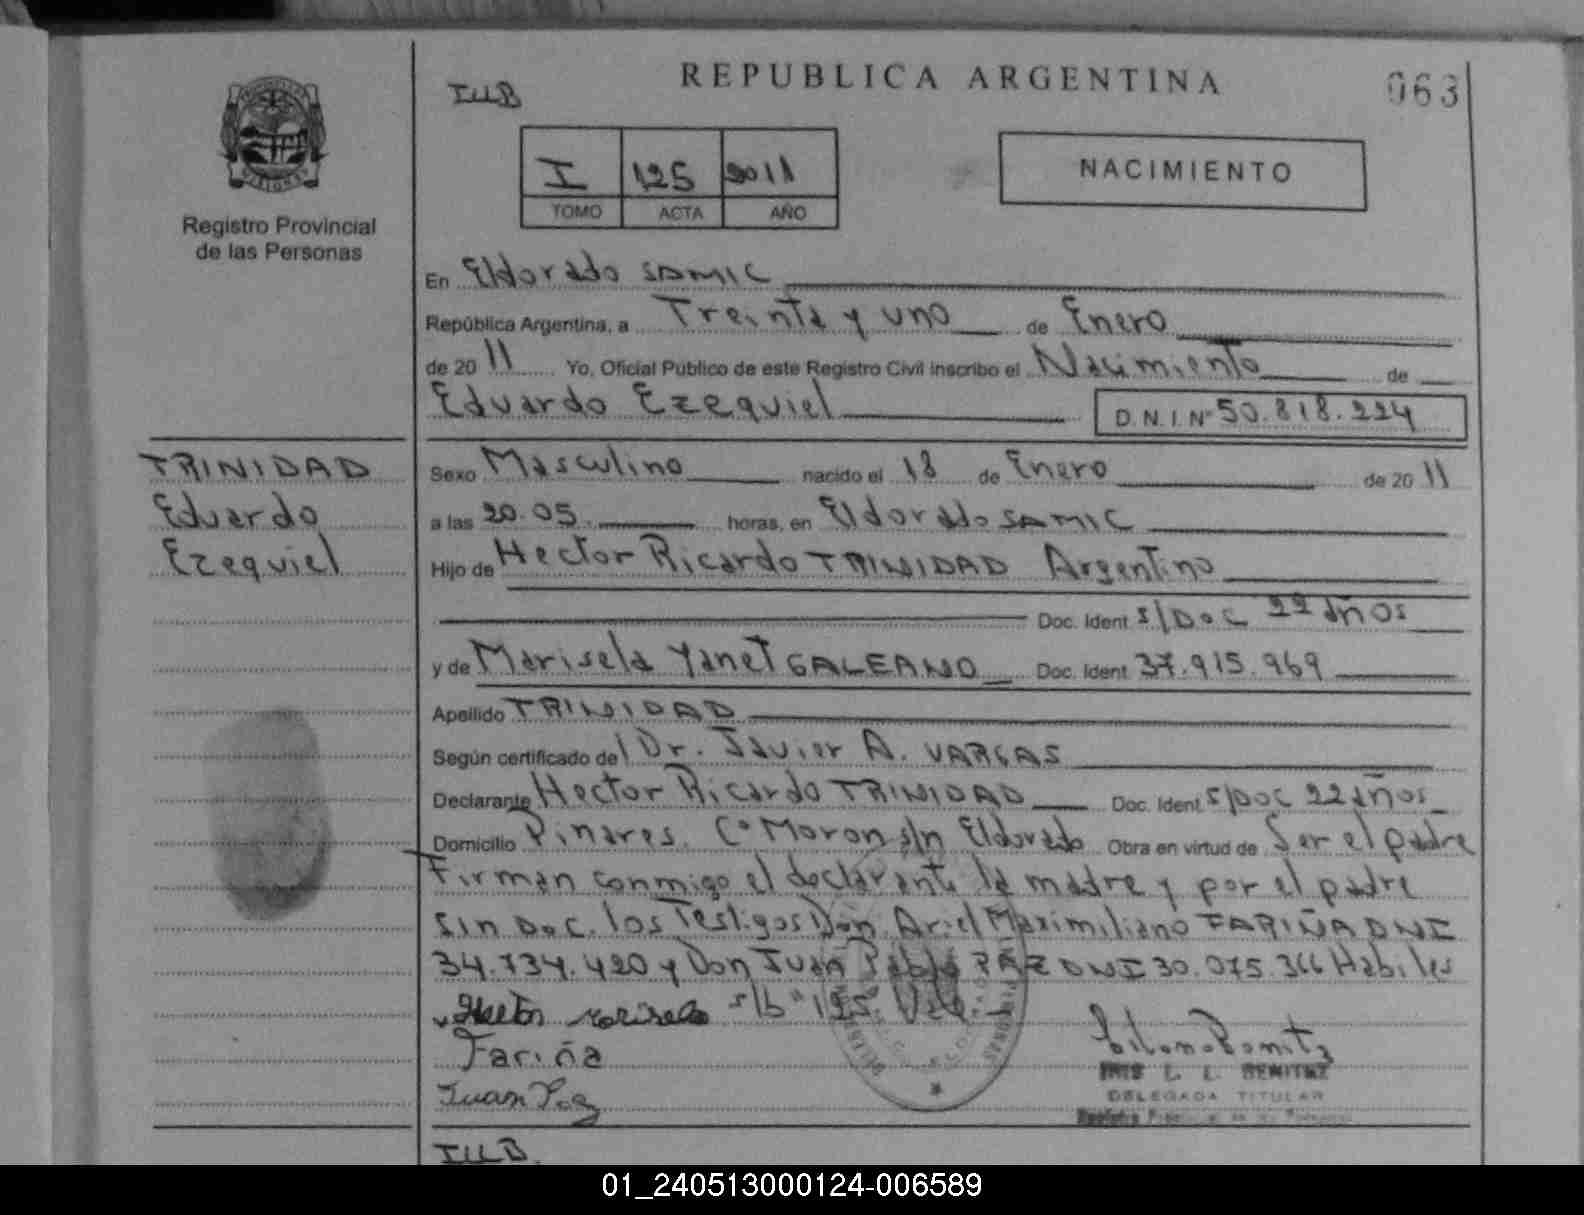 REPUBLICA ARGENTINA
063
ILLB
I 125 2011
TOMO ACTA AÑO
NACIMIENTO
Registro Provincial
de las Personas
En Eldorado SAMIC
República Argentina, a Treinta y uno de Enero
de 2011 Yo, Oficial Público de este Registro Civil inscribo el Nacimiento de
Eduardo Ezequiel D.N.I. Nº 50.818.224
TRINIDAD
Eduardo
Ezequiel
Sexo Masculino nacido el 18 de Enero de 2011
a las 20.05. horas, en Eldorado SAMIC
Hijo de Hector Ricardo TRINIDAD Argentino
Doc. Ident s/Doc 22 años
y de Marisela Yanet GALEANO Doc. Ident 37.915.969
Apellido TRINIDAD
Según certificado del Dr. Javier A. VARGAS
Declarante Hector Ricardo TRINIDAD Doc. Ident s/Doc 22 años
Domicilio Pinares. Cº Moron s/n Eldorado Obra en virtud de Ser el padre
Firman conmigo el declarante la madre y por el padre
sin Doc. los Testigos Don Ariel Maximiliano FARIÑA DNI
34.734.420 y Don Juan Pablo PAEZ DNI 30.075.366 Habiles
Hector Marisela s/b "125" Vale.
Fariña
Juan Paz
IRIS L. L. BENITEZ
DELEGADA TITULAR
Registro Provincial de las Personas
ILLB.
01_240513000124-006589